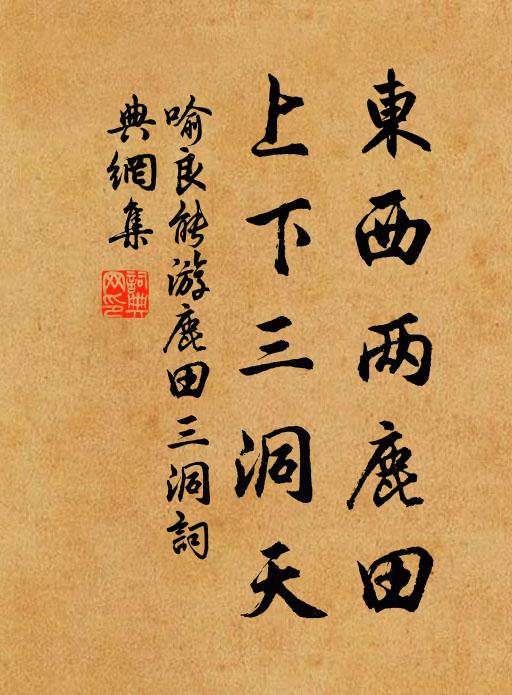 東西两鹿田
上下三洞天
喻良能游鹿田三洞詞
典網集
詞典
网印